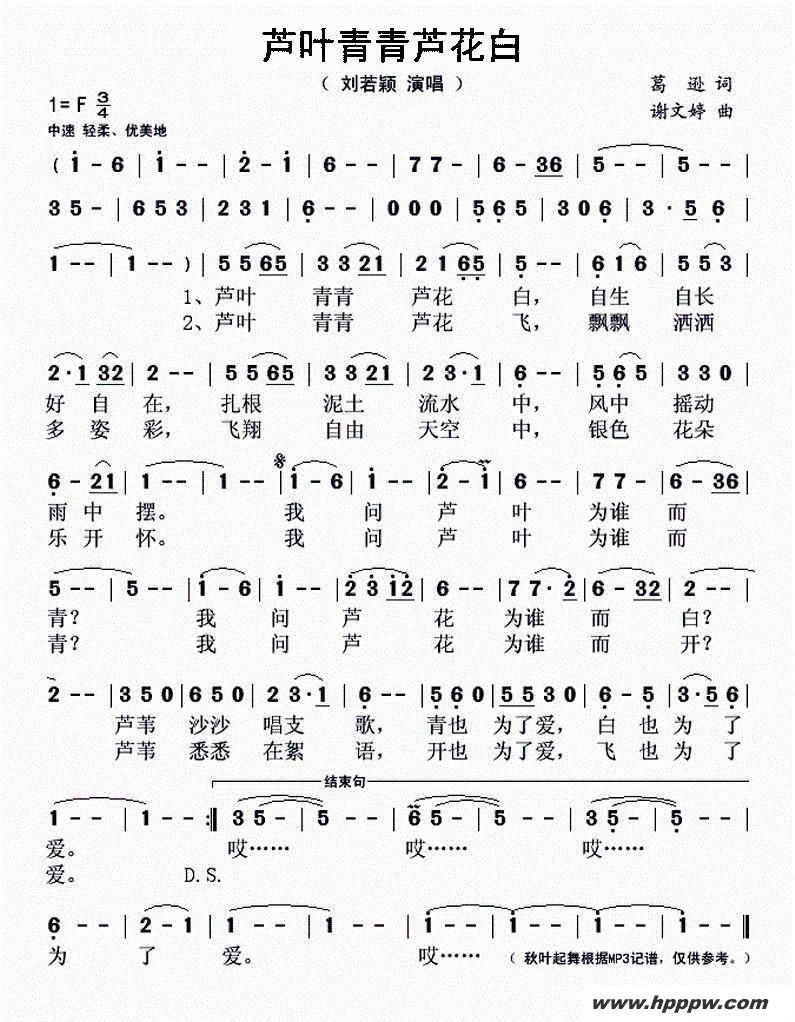 芦叶青青芦花白
（ 刘若颖 演唱 ）
葛 逊 词
1= F 3/4
谢文婷 曲
中速 轻柔、优美地
( 1 - 6 | 1 - - | 2 - 1 | 6 - - | 7 7 - | 6 - 36 | 5 - - | 5 - - |
3 5 - | 6 5 3 | 2 3 1 | 6 - - | 0 0 0 | 5 6 5 | 3 0 6 | 3 · 5 6 |
1 - - | 1 - - ) | 5 5 65 | 3 3 21 | 2 1 65 | 5 - - | 6 1 6 | 5 5 3 |
1、芦叶 青青 芦花 白， 自生 自长
2、芦叶 青青 芦花 飞， 飘飘 洒洒
2 · 1 32 | 2 - - | 5 5 65 | 3 3 21 | 2 3 · 1 | 6 - - | 5 6 5 | 3 3 0 |
好 自 在， 扎根 泥土 流水 中， 风中 摇动
多 姿 彩， 飞翔 自由 天空 中， 银色 花朵
6 - 21 | 1 - - | 1 - - | 1 - 6 | 1 - - | 2 - 1 | 6 - - | 7 7 - | 6 - 36 |
雨 中 摆。 我 问 芦 叶 为谁 而
乐 开 怀。 我 问 芦 叶 为谁 而
5 - - | 5 - - | 1 - 6 | 1 - - | 2 3 12 | 6 - - | 7 7 · 2 | 6 - 32 | 2 - - |
青？ 我 问 芦 花 为谁 而 白？
青？ 我 问 芦 花 为谁 而 开？
2 - - | 3 5 0 | 6 5 0 | 2 3 · 1 | 6 - - | 5 6 0 | 5 5 3 0 | 6 - 5 | 3 · 5 6 |
芦苇 沙沙 唱支 歌， 青也 为了爱， 白 也 为 了
芦苇 悉悉 在絮 语， 开也 为了爱， 飞 也 为 了
结束句
1 - - | 1 - - :| 3 5 - | 5 - - | 6 5 - | 5 - - | 3 5 - | 5 - - |
爱。 哎…… 哎…… 哎……
爱。 D.S.
6 - - | 2 - 1 | 1 - - | 1 - - | 1 - - | 1 - - | 1 - - | 1 - - |
为 了 爱。 哎…… （ 秋叶起舞根据MP3记谱，仅供参考。）
www.hpppw.com